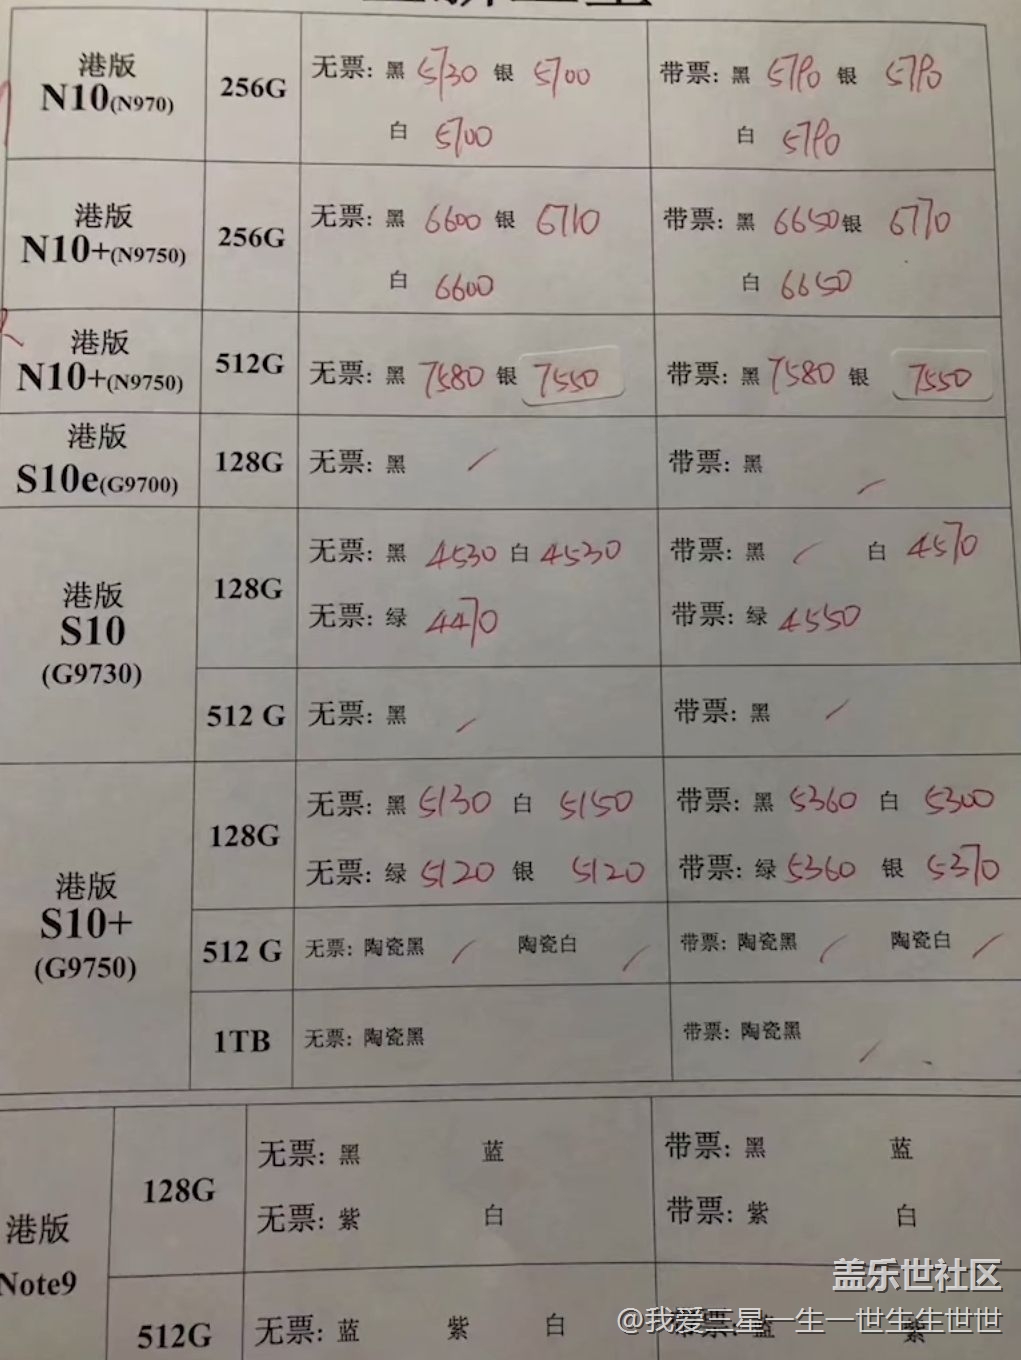 港版
N10(N970)
256G
无票: 黑 5730 银 5700
白 5700
带票: 黑 5790 银 5790
白 5790
港版
N10+(N9750)
256G
无票: 黑 6600 银 6710
白 6600
带票: 黑 6650 银 6770
白 6650
港版
N10+(N9750)
512G
无票: 黑 7580 银 7550
带票: 黑 7580 银 7550
港版
S10e(G9700)
128G
无票: 黑 /
带票: 黑 /
港版
S10
(G9730)
128G
无票: 黑 4530 白 4530
无票: 绿 4470
带票: 黑 / 白 4570
带票: 绿 4550
512 G
无票: 黑 /
带票: 黑 /
港版
S10+
(G9750)
128G
无票: 黑 5130 白 5150
无票: 绿 5120 银 5120
带票: 黑 5360 白 5300
带票: 绿 5360 银 5370
512 G
无票: 陶瓷黑 / 陶瓷白 /
带票: 陶瓷黑 / 陶瓷白 /
1TB
无票: 陶瓷黑
带票: 陶瓷黑 /
港版
Note9
128G
无票: 黑 蓝
无票: 紫 白
带票: 黑 蓝
带票: 紫 白
512G
无票: 蓝 紫 白
带票: 蓝 紫
盖乐世社区
@我爱三星一生一世生生世世